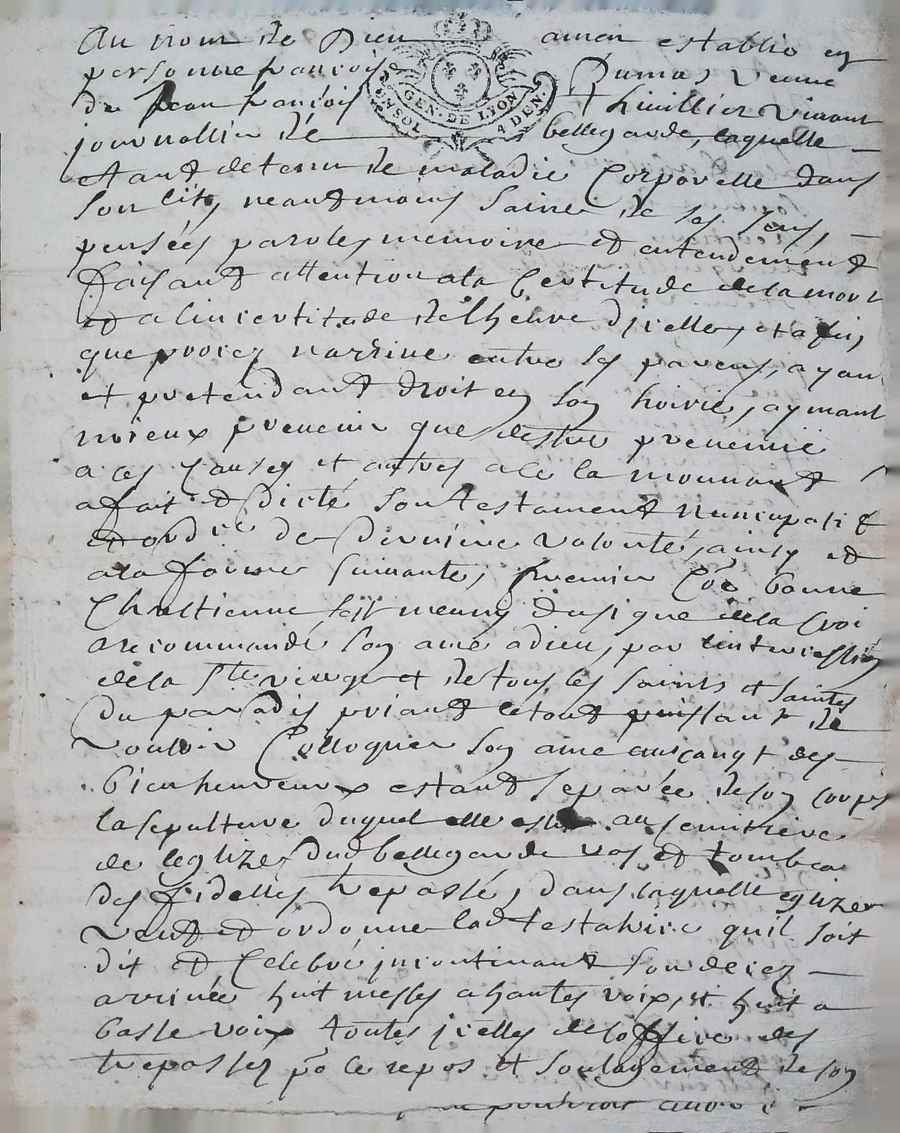 Au nom de Dieu amen establie en
personne françois Dumas veuve
GEN · DE LYON
UN SOL 4 DEN ·
de Jean françois Thuillier vivant
journallier de bellegarde, laquelle
etant detenu de maladie Corporelle dans
son lit, neantmoins saine de ses sens,
pensées paroles memoire et entendement
faisant attention a la Certitude de la mort
et a lincertitude de lheure dicelle, et afin
que procez narrive entre les parens, ayan
et pretendant droit en son hoirie, aymant
mieux prevenir que destre prevenüe
a ces Causes et autres a ce la mouvant
a fait et dicté son testament Nuncupatif
et ordre de derniere volonté, ainsy et
a la forme suivante, premier Coe bonne
Chrestienne sest munye du signe de la Croix
a recommandé son ame a dieu, par lintercession
de la Ste vierge et de tous les saints et saintes
du paradis priant le tout puissant de
vouloir Colloquer son ame au rang des
bienheureux estant separée de son corps
la sepulture duquel elle eslit au semitiere
de leglize dud bellegarde vas et tombeau
des fidelles trepassé, dans laquelle eglize
veut et ordonne lad testatrice quil soit
dit et Celebré incontinant son decez
arrivée huit messes a hautes voix, et huit a
basse voix toutes icelles de loffice des
trepassez po le repos et soulagement de son